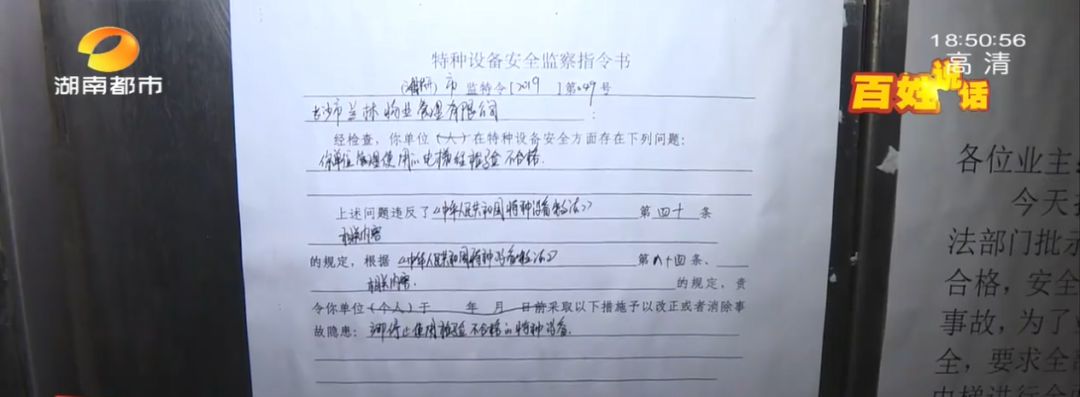 湖南都市
18:50:56
高清
百姓说话
特种设备安全监察指令书
市 监特令[2019 ]第 049 号
长沙市兰林物业管理有限公司
经检查，你单位（人）在特种设备安全方面存在下列问题：
你单位管理使用的电梯经检验不合格.
上述问题违反了《中华人民共和国特种设备安全法》 第 四十 条
相关内容
的规定，根据 《中华人民共和国特种设备安全法》 第八十四条、
相关内容. 的规定，责
令你单位（个人）于 年 月 日前采取以下措施予以改正或者消除事
故隐患： 停止使用检验不合格的特种设备.
各位业主
今天
法部门批示
合格，安全
事故，为了
全，要求全部
电梯进行全